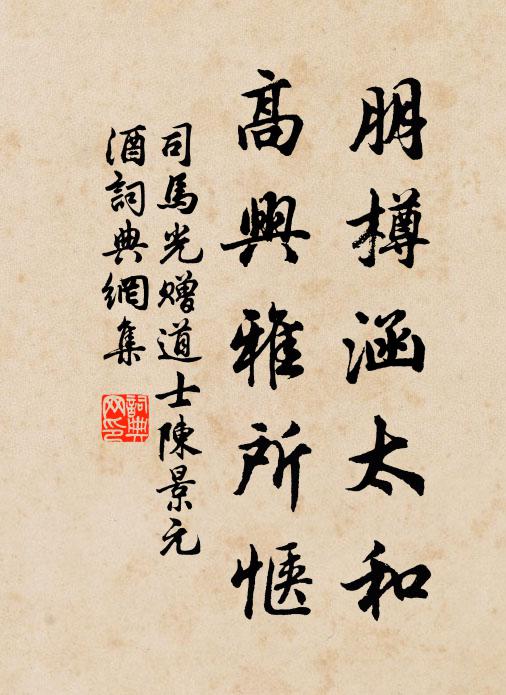 朋樽涵太和
高興雅所愜
司馬光贈道士陳景元
酒詞典網集
詞典
网印